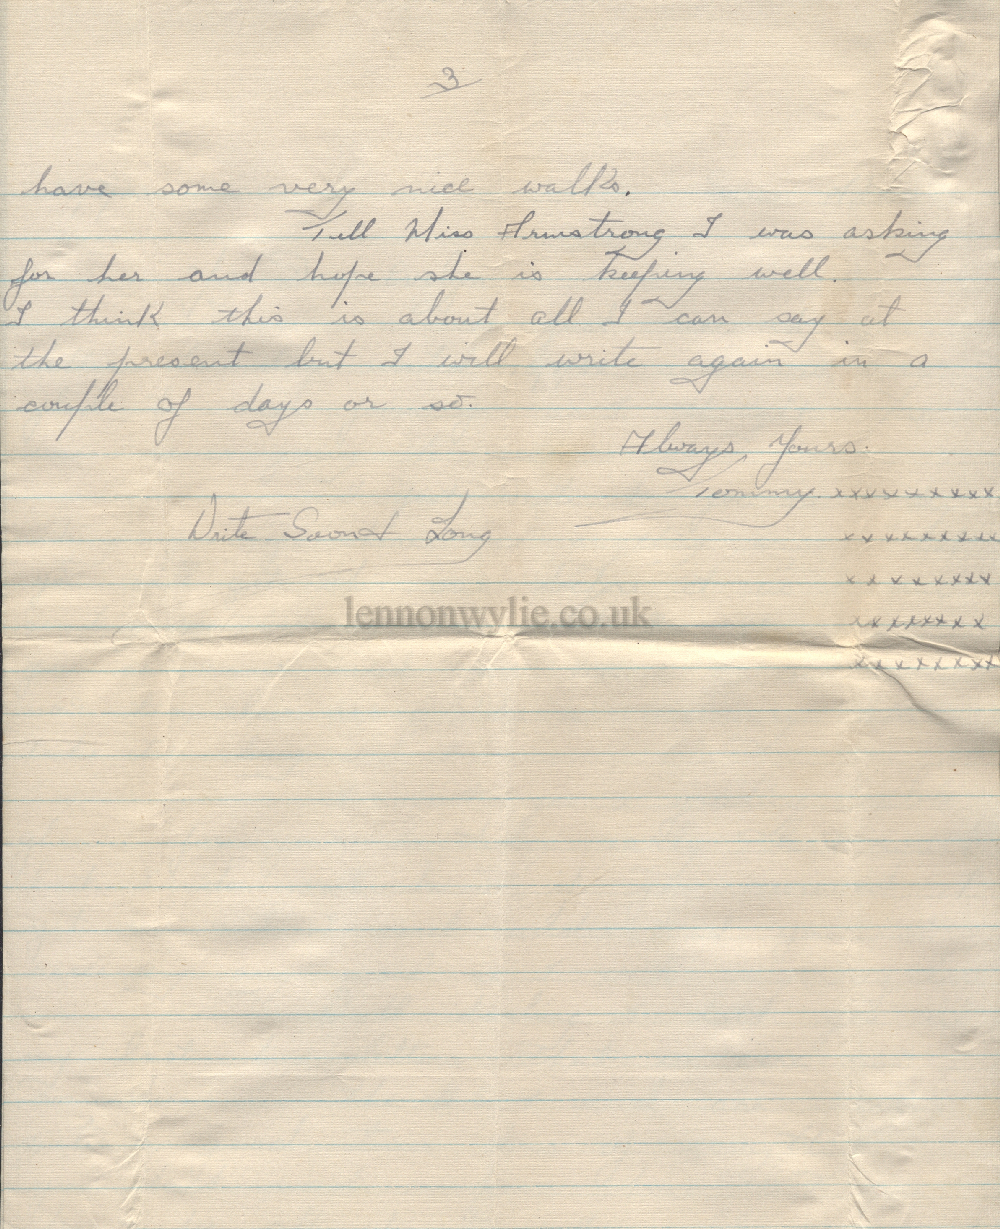 3
have some very nice walks.
Tell Miss Armstrong I was asking
for her and hope she is keeping well.
I think this is about all I can say at
the present but I will write again in a
couple of days or so.
Always Yours.
Tommy. xxxxxxxxxx
Write Soon & Long
xxxxxxxxx
xxxxxxxx
lennonwylie.co.uk
xxxxxxxx
xxxxxxxx